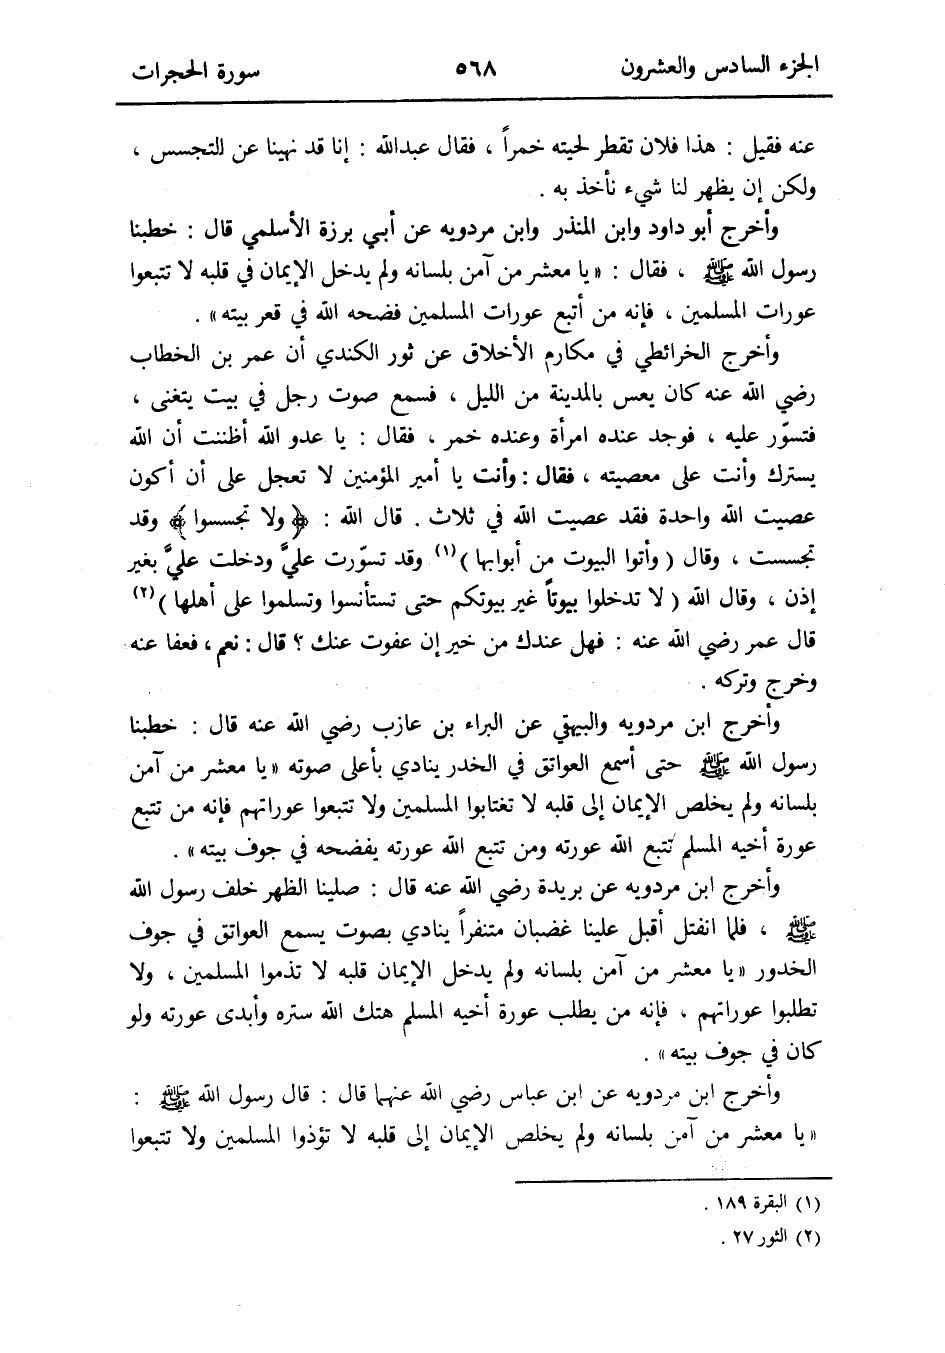 الجزء السادس والعشرون ٥٦٨ سورة الحجرات
عنه فقيل : هذا فلان تقطر لحيته خمراً ، فقال عبدالله : إنا قد نهينا عن التجسس ،
ولكن إن يظهر لنا شيء نأخذ به .
وأخرج أبو داود وابن المنذر وابن مردويه عن أبي برزة الأسلمي قال : خطبنا
رسول الله ﷺ ، فقال : « يا معشر من آمن بلسانه ولم يدخل الإيمان في قلبه لا تتبعوا
عورات المسلمين ، فإنه من أتبع عورات المسلمين فضحه الله في قعر بيته » .
وأخرج الخرائطي في مكارم الأخلاق عن ثور الكندي أن عمر بن الخطاب
رضي الله عنه كان يعس بالمدينة من الليل ، فسمع صوت رجل في بيت يتغنى ،
فتسوّر عليه ، فوجد عنده امرأة وعنده خمر ، فقال : يا عدو الله أظننت أن الله
يسترك وأنت على معصيته ، فقال : وأنت يا أمير المؤمنين لا تعجل على أن أكون
عصيت الله واحدة فقد عصيت الله في ثلاث . قال الله : ﴿ ولا تجسسوا ﴾ وقد
تجسست ، وقال ( وأتوا البيوت من أبوابها )(١) وقد تسوّرت عليَّ ودخلت عليَّ بغير
إذن ، وقال الله ( لا تدخلوا بيوتاً غير بيوتكم حتى تستأنسوا وتسلموا على أهلها )(٢)
قال عمر رضي الله عنه : فهل عندك من خير إن عفوت عنك ؟ قال : نعم ، فعفا عنه
وخرج وتركه .
وأخرج ابن مردويه والبيهقي عن البراء بن عازب رضي الله عنه قال : خطبنا
رسول الله ﷺ حتى أسمع العواتق في الخدر ينادي بأعلى صوته « يا معشر من آمن
بلسانه ولم يخلص الإيمان إلى قلبه لا تغتابوا المسلمين ولا تتبعوا عوراتهم فإنه من تتبع
عورة أخيه المسلم تتبع الله عورته ومن تتبع الله عورته يفضحه في جوف بيته » .
وأخرج ابن مردويه عن بريدة رضي الله عنه قال : صلينا الظهر خلف رسول الله
ﷺ ، فلما انفتل أقبل علينا غضبان متنفراً ينادي بصوت يسمع العواتق في جوف
الخدور « يا معشر من آمن بلسانه ولم يدخل الإيمان قلبه لا تذموا المسلمين ، ولا
تطلبوا عوراتهم ، فإنه من يطلب عورة أخيه المسلم هتك الله ستره وأبدى عورته ولو
كان في جوف بيته » .
وأخرج ابن مردويه عن ابن عباس رضي الله عنهما قال : قال رسول الله ﷺ :
« يا معشر من آمن بلسانه ولم يخلص الإيمان إلى قلبه لا تؤذوا المسلمين ولا تتبعوا
(١) البقرة ١٨٩ .
(٢) الثور ٢٧ .